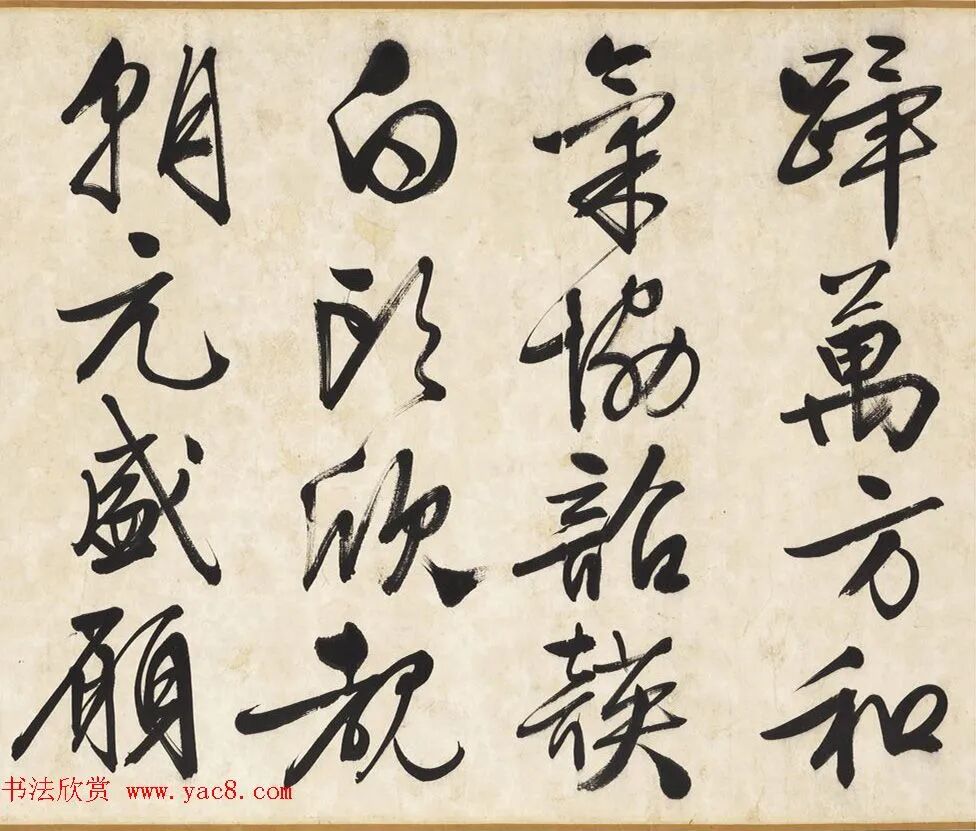 蹕萬方和
氣協韶韺
白頭欣覩
朝元盛願
书法欣赏 www.yac8.com